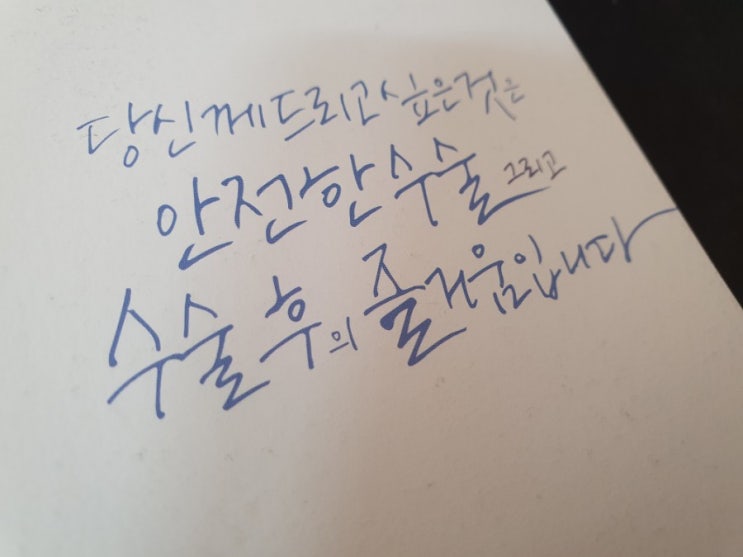 당신께 드리고 싶은 것은
안전한 수술 그리고
수술 후의 즐거움입니다